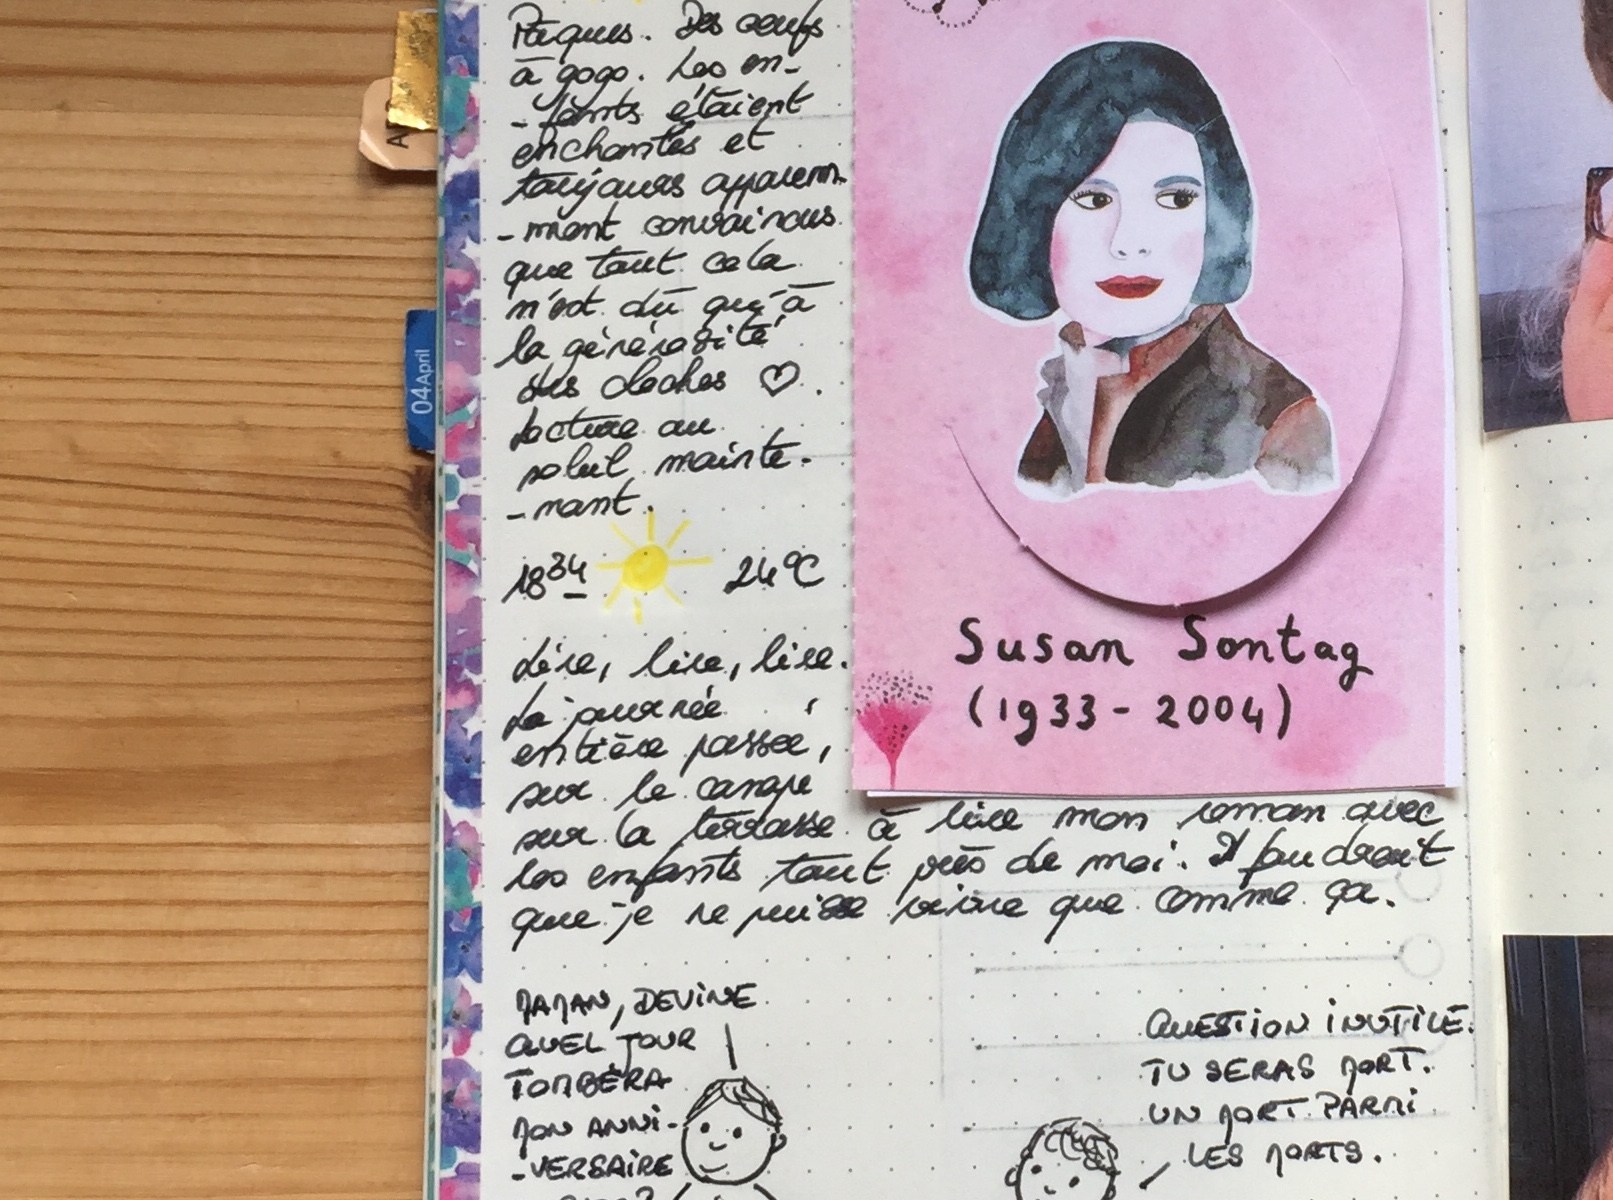 Pâques. Des oeufs
à gogo. Les en-
-fants étaient
enchantés et
toujours apparem-
-ment convaincus
que tout cela
n'est dû qu'à
la générosité
des cloches ♡.
Lecture au
soleil mainte-
-nant.
18 34 24°C
Lire, lire, lire.
La journée
entière passée,
sur le canapé
sur la terrasse à lire mon roman avec
les enfants tout près de moi. Il faudrait
que je ne puisse vivre que comme ça.
MAMAN, DEVINE
QUEL JOUR
TOMBERA
MON ANNI-
-VERSAIRE
QUESTION INUTILE.
TU SERAS MORT.
UN MORT PARMI
LES MORTS.
Susan Sontag
(1933-2004)
04 April